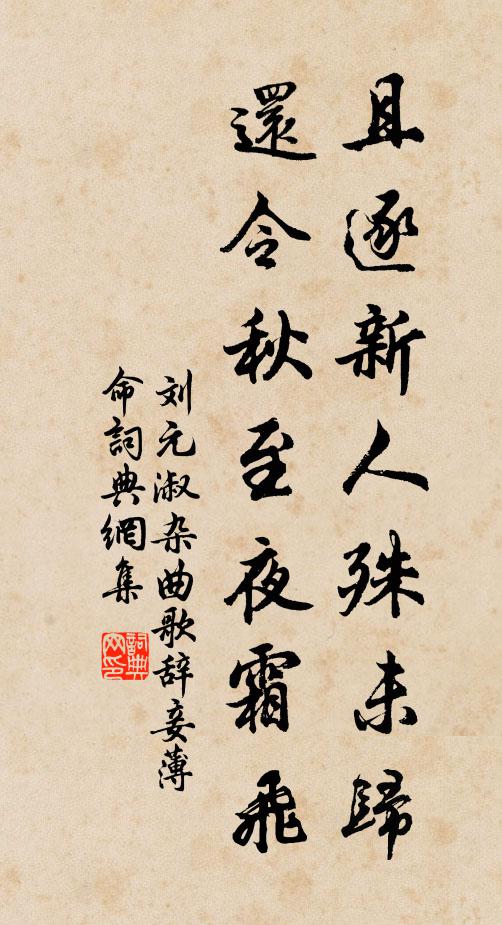 且逐新人殊未歸
還令秋至夜霜飛
刘元淑杂曲歌辞妾薄
命詞典網集
詞典
网印